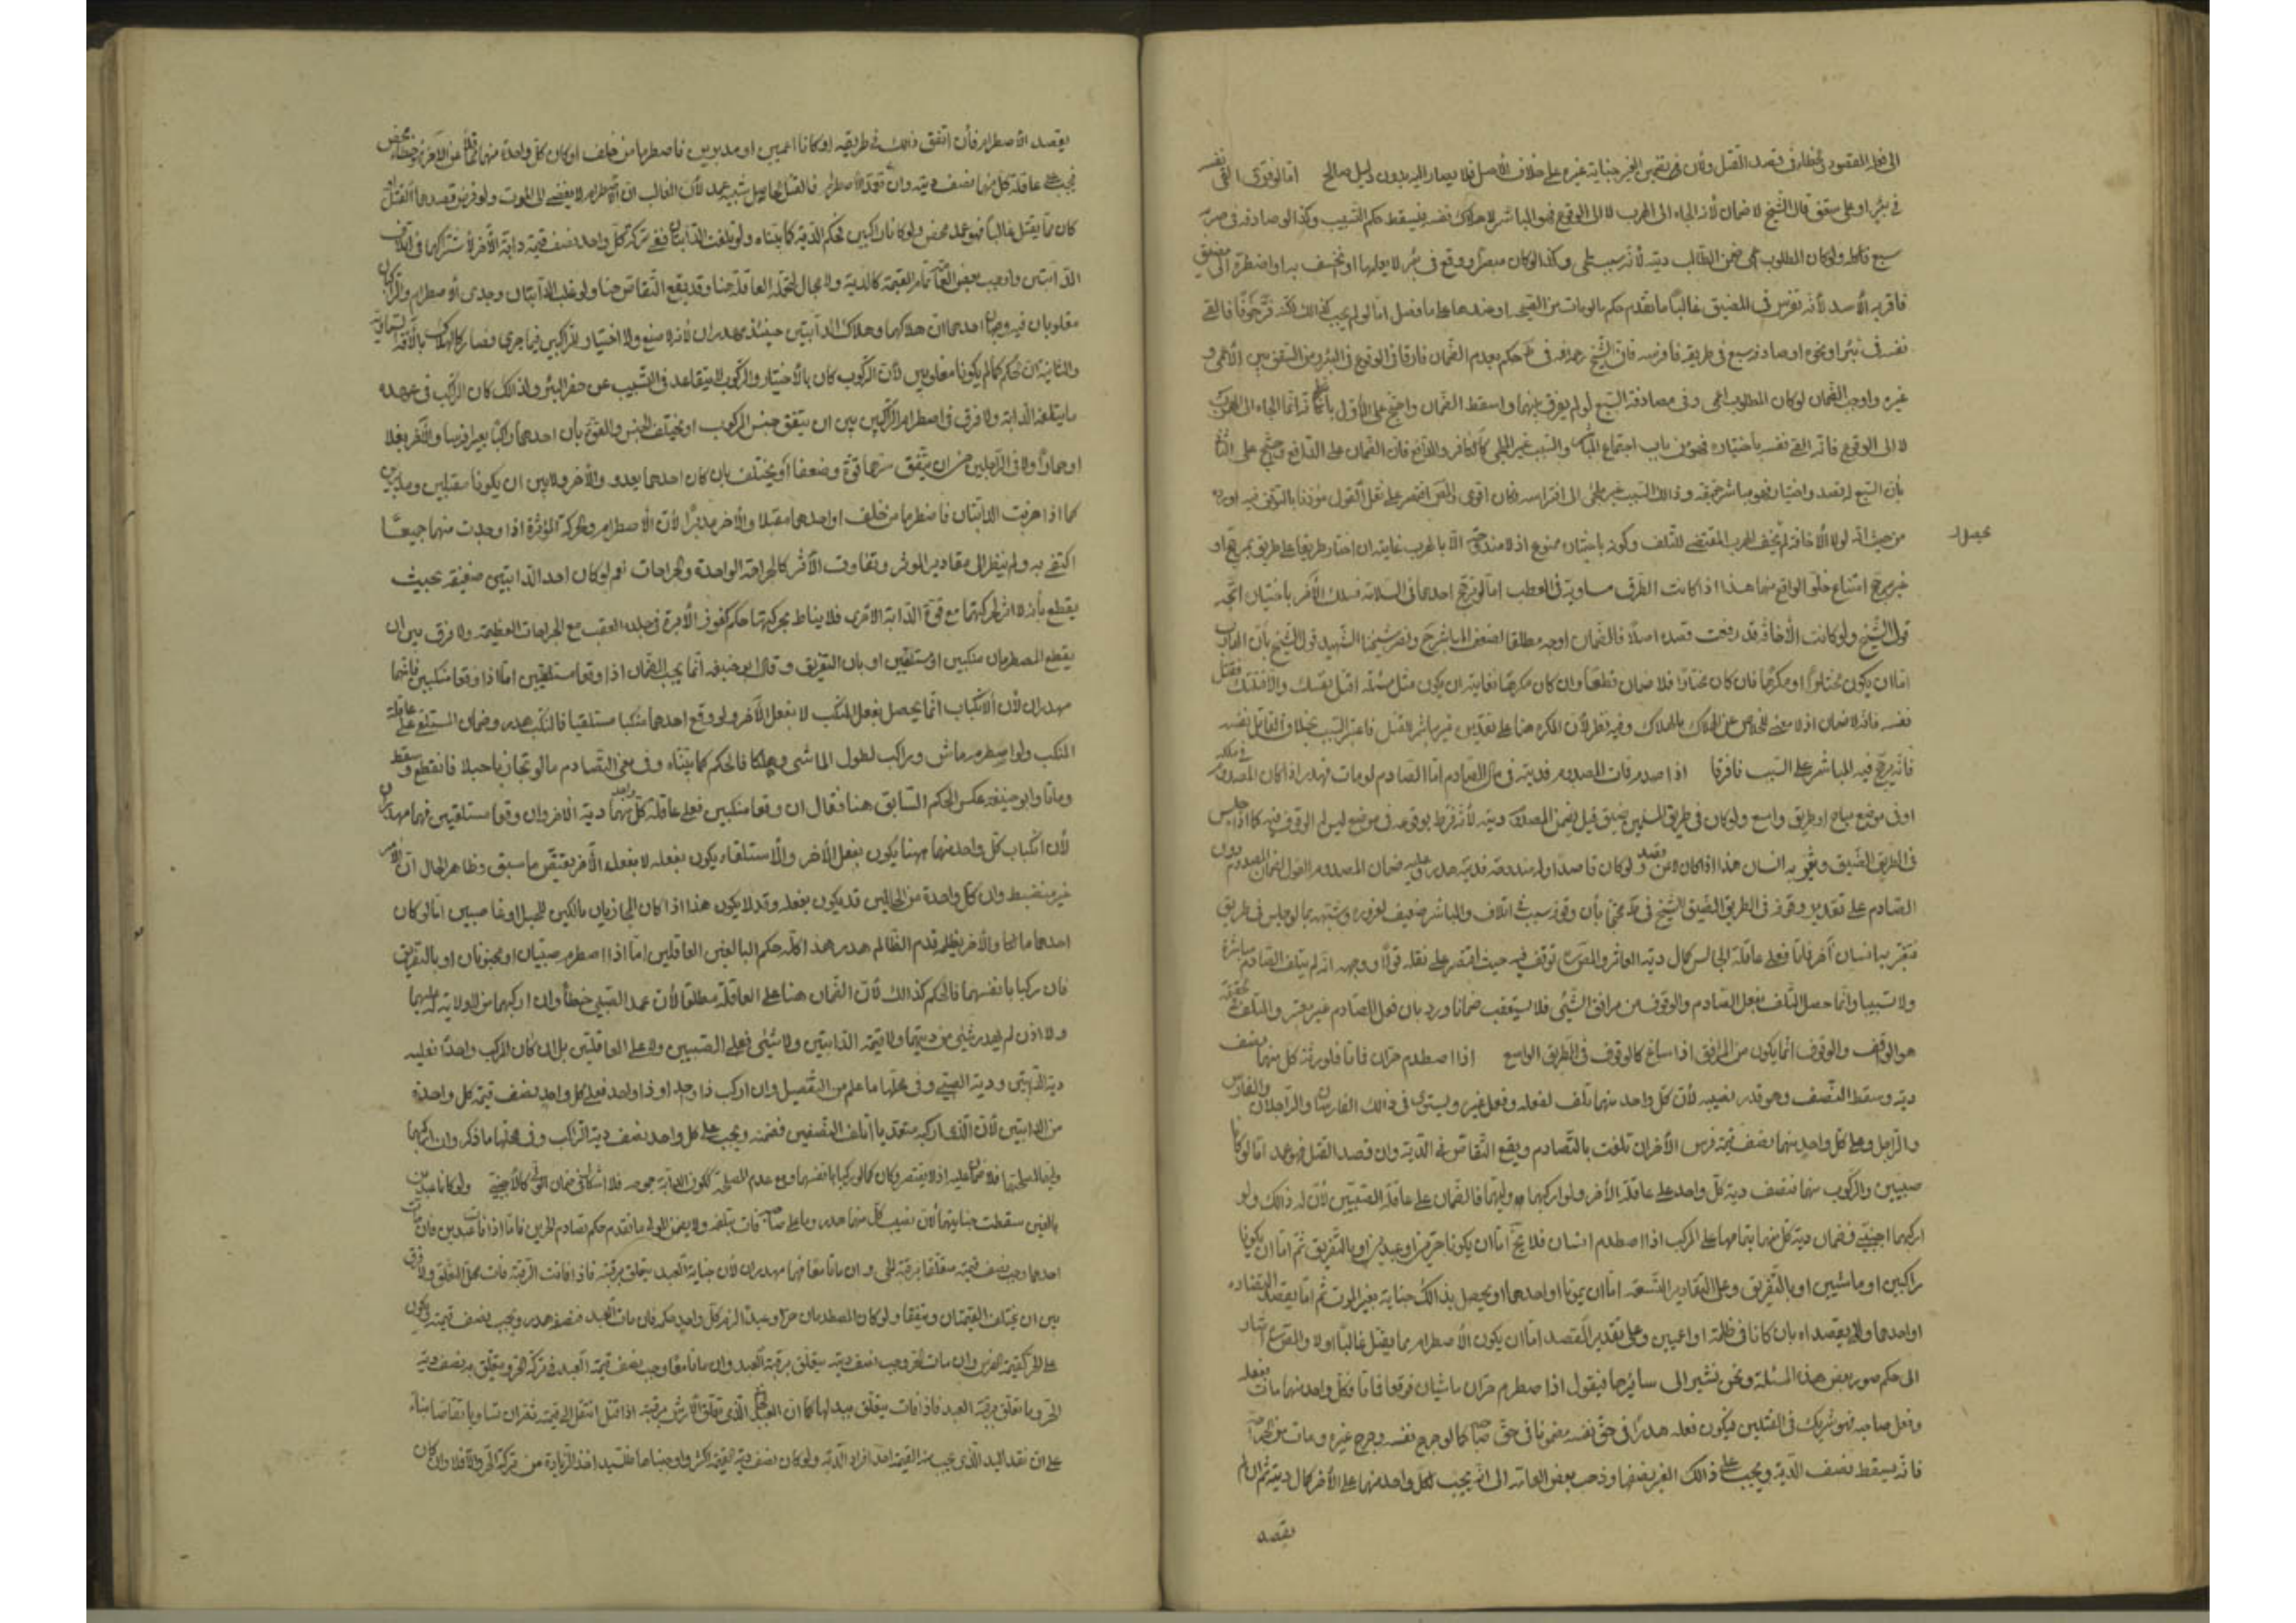 الى فعله المقصود
في بئر او على سقف قال الشيخ لا ضمان لانه الجاه الى الهرب لا الى الوقوع فهو المباشر لاهلاك نفسه فيسقط حكم التسبيب وكذا لو صادفه في هربه
سبع فاكله ولو كان المطلوب اعمى ضمن الطالب ديته لانه سبب ملجئ وكذا لو كان مبصرا ووقع في بئر لا يعلمها او انخسف به او اضطره الى مضيق
فافترسه الاسد لانه يفترس في المضيق غالبا ما تقدم حكم ما لو مات من
نفسه في بئر او نحوه او صادفه سبع في طريقه فافترسه فان الشيخ رحمه الله في ط حكم بعدم الضمان فارقا في الوقوع في البئر ومن السقف بين الاعمى و
غيره واوجب الضمان لو كان المطلوب اعمى وفي مصادفة السبع لو لم يفرق بينهما واسقط الضمان واحتج على الاول بانه انما الجاه الى الهرب
لا الى الوقوع فانه القى نفسه باختياره فهو من باب اجتماع المباشر والسبب غير الملجئ كالحافر والدافع فان الضمان على الدافع
بان السبع له قصد واختيار فهو مباشر
من حيث انه لولا الاخافة لم يحصل الهرب المقتضي للتلف وكونه باختياره ممنوع اذ لا مندوحة الا بالهرب غايته ان اختار طريقا على طريق بمرجح او
غير مرجح امتناع خلو الواقع منهما هذا اذا كانت الطرق مساوية في العطب اما لو ترجح احدها في السلامة فسلك الاخر باختياره اتجه
قول الشيخ ولو كانت الاخافة قد رفعت قصده اصلا فالضمان اوجه مطلقا لضعف المباشر ح ونصر شيخنا الشهيد قول الشيخ بان الهارب
اما ان يكون مختارا او مكرها فان كان مختارا فلا ضمان قطعا وان كان مكرها فغايته ان يكون مثل مسئلة اقتل نفسك والا قتلتك فقتل
نفسه فانه لا ضمان اذ لا معنى للخلاص عن الهلاك بالهلاك وفيه نظر لان المكره هنا على تقديره غير مباشر للقتل فاعتبر السبب بخلاف القاتل نفسه
فانه يرجح فيه المباشر على السبب فافترقا اذا صدمه فمات المصدوم فديته في مال الصادم اما الصادم لو مات فهدر اذا كان المصدوم في ملكه
او في موضع مباح او طريق واسع ولو كان في طريق المسلمين ضيق قيل يضمن المصدوم ديته لانه فرط بوقوفه في موضع ليس له الوقوف فيه كما اذا جلس
في الطريق الضيق وعثر به انسان هذا اذا كان لا عن قصد ولو كان قاصدا وله مندوحة فدمه هدر وعليه ضمان المصدوم القول بضمان المصدوم دون
الصادم على تقدير وقوفه في الطريق الضيق للشيخ في ط محتجا بان وقوفه سبب في اتلافه والمباشر ضعيف لغروره وشبهه بما لو جلس في طريق
فتعثر به انسان آخر فماتا فعلى عاقلة الجالس كمال دية العاثر والمصنف توقف فيه حيث اقتصر على نقله قولا ووجهه انه لم يتلف الصادم مباشرة
ولا تسبيبا وانما حصل التلف بفعل الصادم والوقوف من مرافق المشي فلا يستعقب ضمانا ورد بان فعل الصادم غير معتبر والمتلف حقيقة
هو الواقف والوقوف انما يكون من المرافق اذا ساغ كالوقوف في الطريق الواسع اذا اصطدم حران فماتا فلورثة كل منهما نصف
ديته وسقط النصف وهو قدر نصيبه لان كل واحد منهما تلف بفعله وفعل غيره ويستوي في ذالك الفارسان والراجلان والفارس
والراجل وعلى كل واحد منهما نصف قيمة فرس الآخر ان تلفت بالتصادم ويقع التقاص في الدية وان قصد القتل فهو عمد اما لو كانا
صبيين والركوب منهما فنصف دية كل واحد على عاقلة الآخر ولو اركبهما وليهما فالضمان على عاقلة الصبيين لان له ذالك ولو
اركبهما اجنبي فضمان دية كل منهما بتمامها على المركب اذا اصطدم انسان فلا يخ اما ان يكونا حرين او عبدين او بالتفريق ثم اما ان يكونا
راكبين او ماشيين او بالتفريق وعلى التقادير التسعة اما ان يموتا او احدهما او يحصل بذالك جناية بغير الموت ثم اما يقصدا التصادم
او احدهما او لا يقصداه بان كانا في ظلمة او اعميين وعلى تقدير القصد اما ان يكون الاصطدام مما يقتل غالبا او لا والمصنف اشار
الى حكم صور بعض هذه المسئلة ونحن نشير الى سائرها فيقول اذا اصطدم حران ماشيان فوقعا فماتا فكل واحد منهما مات بفعله
وفعل صاحبه فهو شريك في القتلين فيكون فعله هدرا في حق نفسه مضمونا في حق صاحبه كما لو جرح نفسه وجرحه غيره ومات من الجراحتين
فانه يسقط نصف الدية ويجب على ذالك الغير نصفها وذهب بعض العامة الى انه يجب لكل واحد منهما على الآخر كمال ديته ثم ان لم
يقصد
يحصل
يقصد الاصطدام فان اتفق ذالك في طريقه او كانا اعميين او مدبرين فاصطدما من خلف او كان كل واحد منهما غافلا عن الاخر فهو خطأ محض
يجب على عاقلة كل منهما نصف ديته وان تعمدا الاصطدام فالقتل الحاصل شبيه عمد لان الغالب ان الاصطدام لا يفضي الى الموت ولو فرض قصدهما القتل او
كان مما يقتل غالبا فهو عمد محض ولو كانا راكبين فحكم الدية كما بيناه ولو تلفت الدابتان ففي تركة كل واحد نصف قيمة دابة الآخر لاشتراكهما في اتلاف
الدابتين واوجب بعض العامة تمام القيمة كالدية ولا مجال لتحمل العاقلة هنا وقد يقع التقاص هنا ولو غلبت الدابتان وجرى الاصطدام والراكبان
مغلوبان فيه وجهان احدهما ان هلاكهما وهلاك الدابتين حينئذ مهدران لانه لا صنع ولا اختيار للراكبين فيما جرى فصار كالهلاك بالآفة السماوية
والثانية ان الحكم كما لم يكونا مغلوبين لان الركوب كان بالاختيار والركوب لا يتقاعد في التسبيب عن حفر البئر ولذالك كان الراكب في عهدة
ما يتلفه الدابة ولا فرق في اصطدام الراكبين بين ان يتفق جنس المركوب او يختلف الجنس والقوة بان كان احدهما راكبا بعيرا او فرسا والآخر بغلا
او حمارا ولا في الراجلين بين ان يتفق سيرهما قوة وضعفا او يختلف بان كان احدهما يعدو والآخر ولا بين ان يكونا مقبلين ومدبرين
كما اذا هربت الدابتان فاصطدما من خلف او احدهما مقبلا والآخر مدبرا لان الاصطدام والحركة المؤثرة اذا وجدت منهما جميعا
اكتفي به ولم ينظر الى مقادير المؤثر وتفاوت الاثر كالجراحة الواحدة والجراحات نعم لو كان احد الدابتين ضعيفة بحيث
يقطع بانه لا اثر لحركتها مع قوة الدابة الاخرى فلا يناط بحركتها حكم كغرز الابرة في جلد العقب مع الجراحات العظيمة ولا فرق بين ان
يقع المصطدمان منكبين او مستلقيين او بالتفريق وقال ابو حنيفة انما يجب الضمان اذا وقعا مستلقيين اما اذا وقعا منكبين فانهما
مهدران لان الانكباب انما يحصل بفعل المنكب لا بفعل الآخر ولو وقع احدهما منكبا مستلقيا فالمنكب هدر وضمان المستلقي على عاقلة
المنكب ولو اصطدم ماش وراكب لطول الماشي وهلكا فالحكم كما بيناه وفي معنى التصادم ما لو تجاذبا حبلا فانقطع وسقطا
وماتا وابو حنيفة عكس الحكم السابق هنا فقال ان وقعا منكبين فعلى عاقلة كل واحد منهما دية الاخر وان وقعا مستلقيين فهما مهدران
لان انكباب كل واحد منهما ههنا يكون بفعل الآخر والاستلقاء يكون بفعله لا بفعل الآخر بنقيض ما سبق وظاهر الحال ان الامر
غير منضبط وان كل واحدة من الحالتين قد يكون بفعله وقد لا يكون هذا اذا كان المجاذبان مالكين للحبل او غاصبين اما لو كان
احدهما مالكا والآخر يظلم فدم الظالم هدر هذا كله حكم البالغين العاقلين اما اذا اصطدم صبيان او مجنونان او بالتفريق
فان ركبا بانفسهما فالحكم كذالك لان الضمان هنا على العاقلة مطلقا لان عمد الصبي خطأ وان اركبهما من لا ولاية له عليهما
ولا اذن لم يهدر شيئ من ديتهما ولا قيمة الدابتين ولا شيئ على الصبيين ولا على العاقلتين بل ان كان المركب واحدا فعليه
دية الصبيين وفي محلها ما علم من التفصيل وان اركب ذا واحد او ذا واحد فعلى كل واحد نصف قيمة كل واحدة
من الدابتين لان الذي اركبه متعديا اتلف النصفين فضمنه ويجب على كل واحد نصف دية الراكب وفي محلها ما ذكر وان اركبهما
وليهما لمصلحتهما فلا ضمان عليه اذ لا يقصر وكان كما لو ركبا بانفسهما ومع عدم المصلحة ككون الدابة جموحة فلا اشكال في ضمان الولي كالاجنبي ولو كانا عبدين
بالغين سقطت جنايتهما لان نصيب كل منهما هدر وما على صاحبه فات بتلفه ولا يضمن المولى ما تقدم حكم تصادم الحرين فاما اذا كانا عبدين فان مات
احدهما وجب نصف قيمته متعلقا برقبة الحي وان ماتا معا فهما مهدران لان جناية العبد يتعلق برقبته فاذا فاتت الرقبة فات محل التعلق ولا فرق
بين ان يختلف القيمتان ويتفقا ولو كان المصطدمان حرا وعبدا لزم كل واحد حكمه فان مات العبد فنصفه هدر ويجب نصف قيمته ويكون
على الحر كقيمة الفرس وان مات الحر وجب نصف ديته يتعلق برقبة العبد وان ماتا معا وجب نصف قيمة العبد في تركة الحر ويتعلق به نصف دية
الحر وما تعلق برقبة العبد فاذا فات يتعلق ببدلها كما ان العبد الذي تعلق الارش برقبته اذا قتل انتقل الى قيمته ثم ان تساويا تقاصا بناء
على ان نقد البلد الذي يجب منه القيمة احد افراد الدية ولو كان نصف دية القيمة اكثر واوجبناها فللسيد اخذ الزيادة من تركة الحر والا فلا وان كان